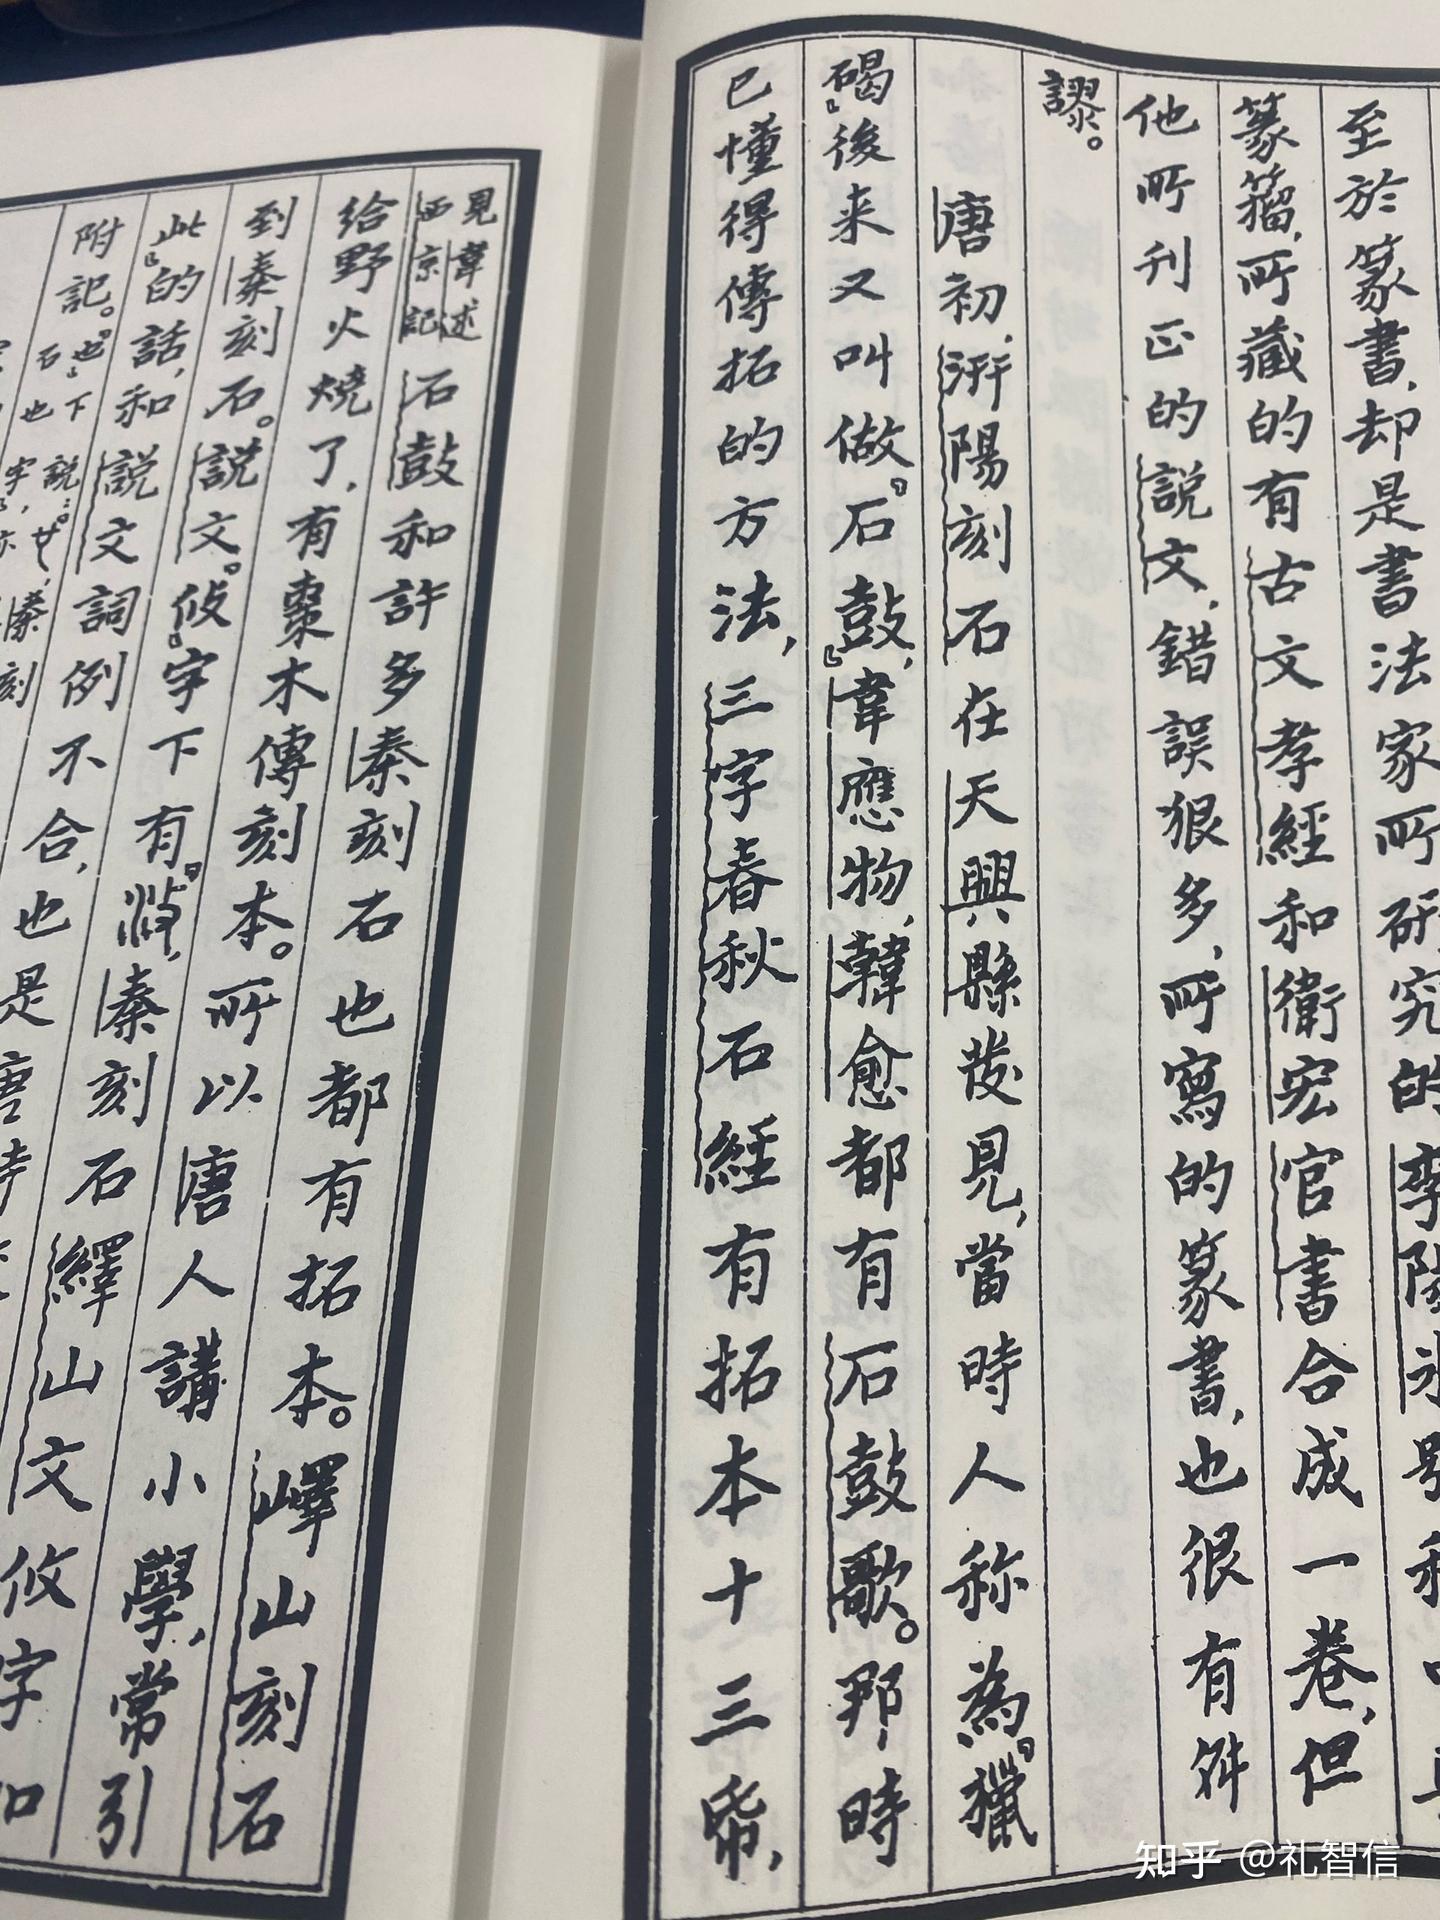 至於篆書，却是書法家所研究的
篆籀，所藏的有古文孝經和衛宏官書合成一卷，但
他所刊正的説文，錯誤狠多，所寫的篆書，也很有舛
謬。
唐初，汧陽刻石在天興縣發見，當時人称為『獵
碣』後来又叫做『石鼓』，韋應物，韓愈都有石鼓歌。那時
已懂得傳拓的方法，三字春秋石經有拓本十三帋，
見韋述
西京記
石鼓和許多秦刻石也都有拓本。嶧山刻石
給野火燒了，有棗木傳刻本。所以唐人講小學，常引
到秦刻石。説文『攸』字下有『浟，秦刻石繹山文攸字如
此』的話，和説文詞例不合，也是唐時
附記。
知乎 @礼智信